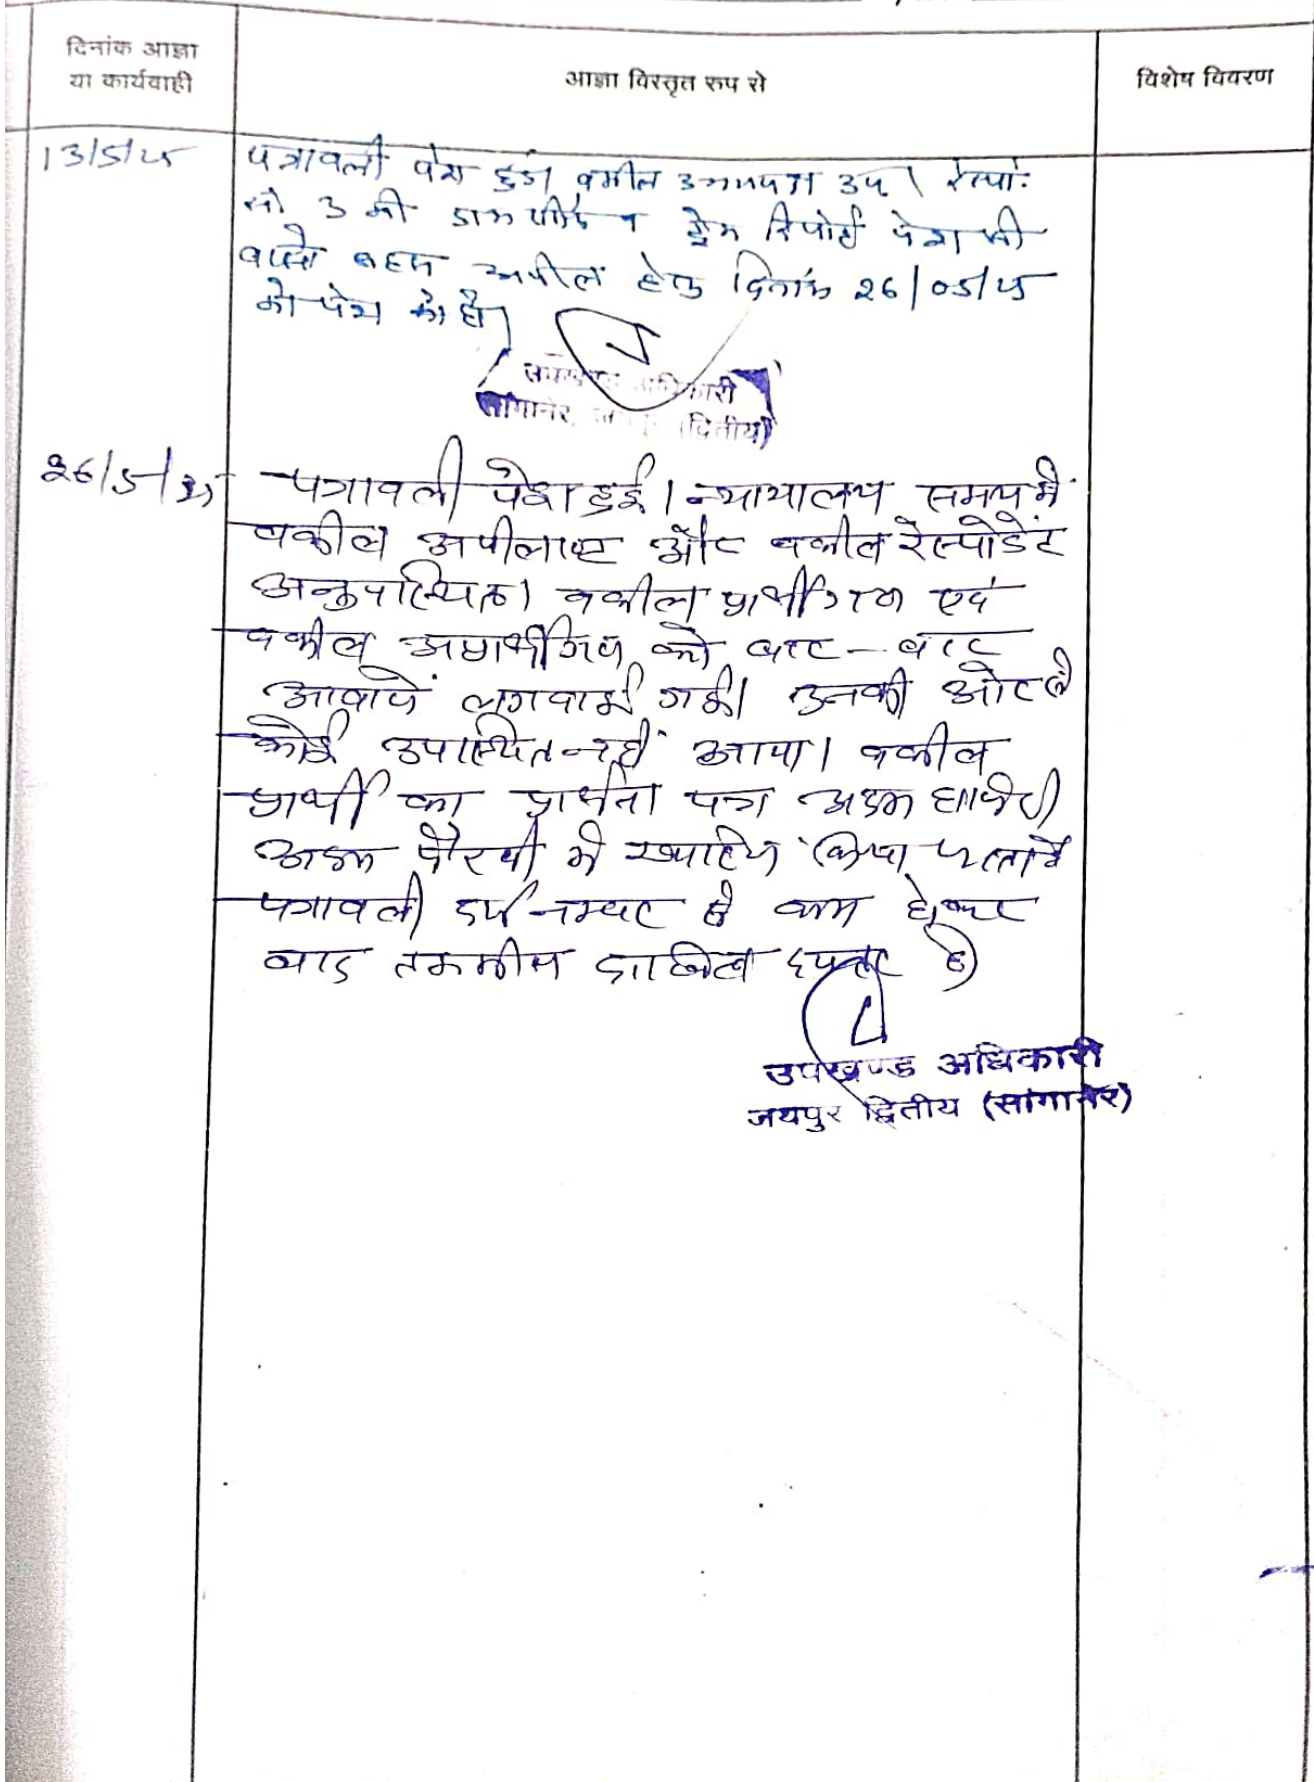 दिनांक आज्ञा
या कार्यवाही
आज्ञा विस्तृत रूप से
विशेष विवरण
13/5/25
पत्रावली पेश हुई। वकील उभयपक्ष उप। रेस्पो.
3 की डाक रिपोर्ट पेश की
वास्ते बहस अपील हेतु दिनांक 26/05/25
को पेश हो।
उपखण्ड अधिकारी
सांगानेर, (द्वितीय)
26/5/25
पत्रावली पेश हुई। न्यायालय समय में
वकील अपीलाण्ट और वकील रेस्पोडेंट
अनुपस्थित। वकील प्रार्थीगण एवं
वकील अप्रार्थीगण को बार-बार
आवाजें लगवाई गई। उनकी ओर से
कोई उपस्थित नहीं आया। वकील
प्रार्थी का प्रार्थना पत्र अदम हाजिरी
अदम पैरवी में खारिज किया जाता है
पत्रावली दर्ज नम्बर से कम होकर
बाद तकमील दाखिल दफ्तर हो
उपखण्ड अधिकारी
जयपुर द्वितीय (सांगानेर)